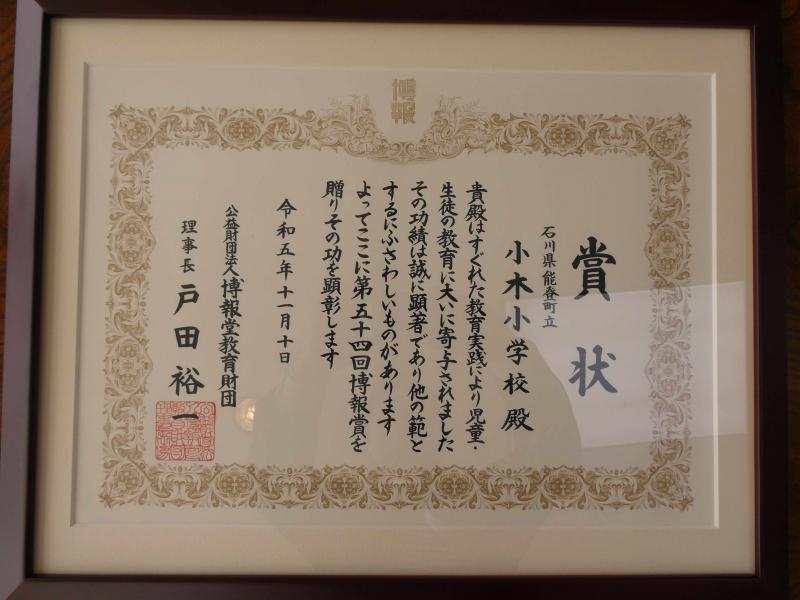 博報
賞状
石川県能登町立
小木小学校殿
貴殿はすぐれた教育実践により児童・
生徒の教育に大いに寄与されました
その功績は誠に顕著であり他の範と
するにふさわしいものがあります
よってここに第五十四回博報賞を
贈りその功を顕彰します
令和五年十一月十日
公益財団法人博報堂教育財団
理事長戸田裕一